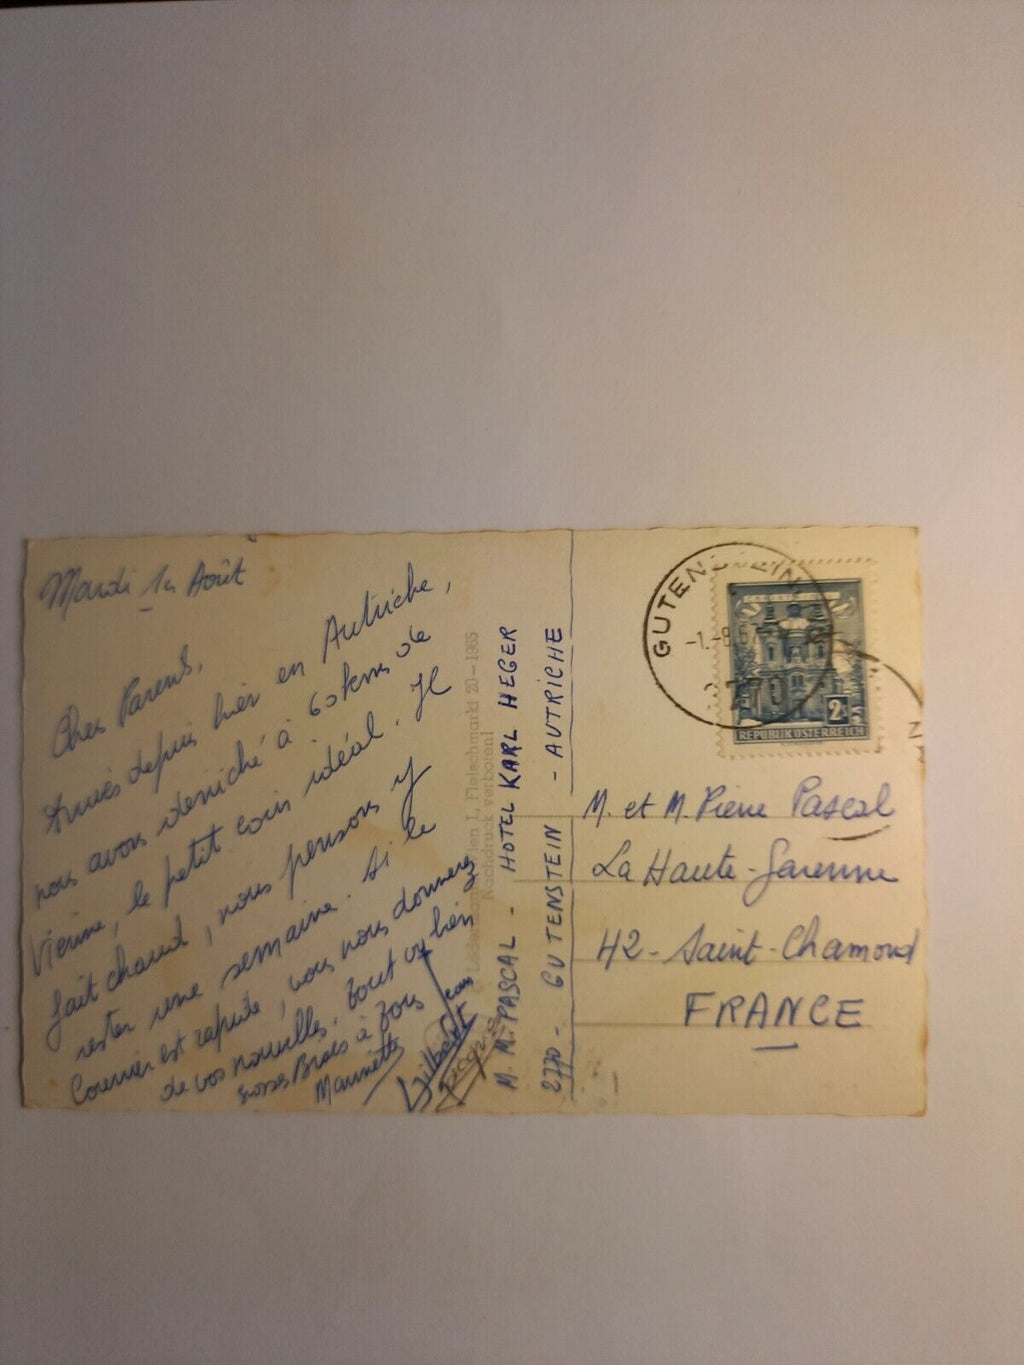 Mardi 1er Août
Chers Parents,
Arrivés depuis hier en Autriche,
nous avons déniché à 60 kms de
Vienne, le petit coin idéal. Il
fait chaud, nous pensons y
rester une semaine. Si le
Courrier est rapide, vous nous donnerez
de vos nouvelles. Tout va bien
Grosses Bises à Tous
Gilbert
M. M. PASCAL - HOTEL KARL HEGER
2770 - GUTENSTEIN - AUTRICHE
Fleischmarkt 20 - 1965
Nachdruck verboten!
GUTENSTEIN
-1.-8.67
2770
2 S
REPUBLIK ÖSTERREICH
M. et M. Pierre Pascal
La Haute-Garenne
42 - Saint-Chamond
FRANCE